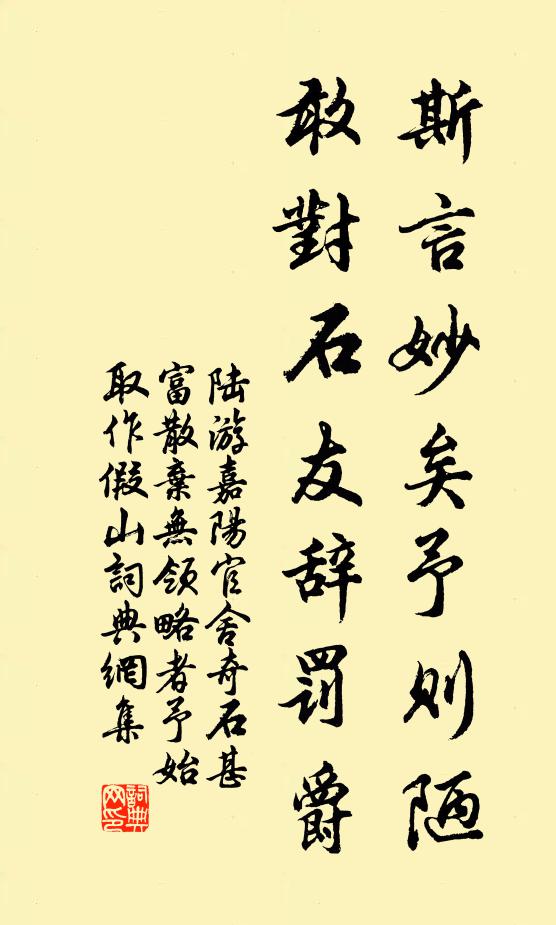 斯言妙矣予则陋
敢對石友辞罰爵
陆游嘉陽官舍奇石甚
富散棄無领略者予始
取作假山詞典網集
詞典网印